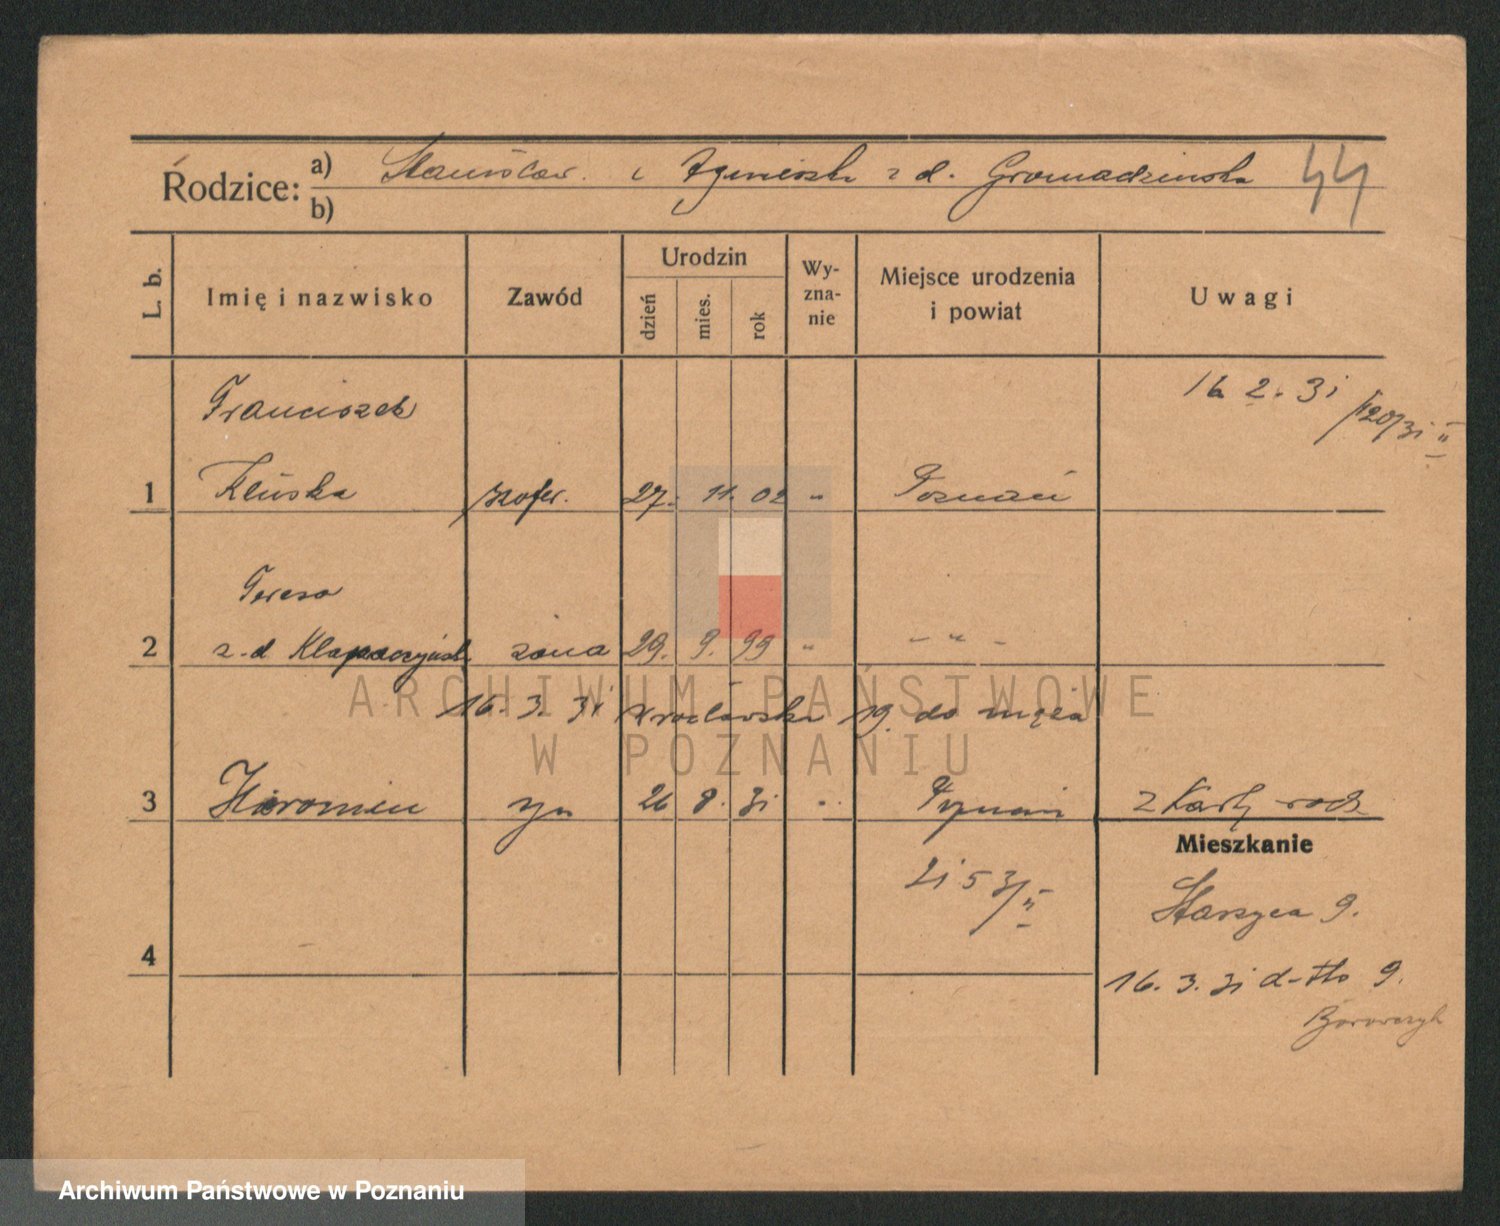 Rodzice: a) Stanisław. i Agnieszk z d. Gromadzinska 44
b)
L. b. Imię i nazwisko Zawód Urodzin dzień mies. rok Wy-zna-nie Miejsce urodzenia i powiat Uwagi
Franciszek 16. 2. 31
1 Kluska szofer. 27. 11. 02 " Poznań
Teresa
2 z. d żona 29. 9. 99 " - " -
16. 3. 31 Wrocławska 19. do męża
3 Hieronim syn 26 8. 31 " Poznań z Karty rodz
Mieszkanie
4
16. 3. 31 d-tto 9.
ARCHIWUM PAŃSTWOWE
W POZNANIU
Archiwum Państwowe w Poznaniu